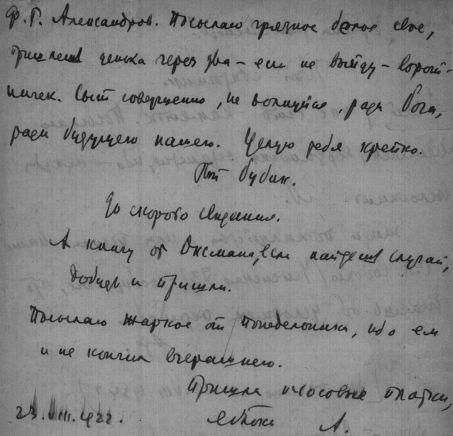 Ф. Г. Александров. Посылаю грязное белое свое,
пришлешь денька через два – если не выйду – воротничек. Сыт совершенно, не волнуйся, ради Бога,
ради будущего нашего. Целую тебя крепко.
Твой бубик.
До скорого свидания.
А книгу от Оксмана, если найдешь случай,
добудь и пришли.
Посылаю жаркое от понедельника, ибо ем
и не кончил вчерашнего.
Пришли носовые платки,
23.VIII.1922. яблоки А.